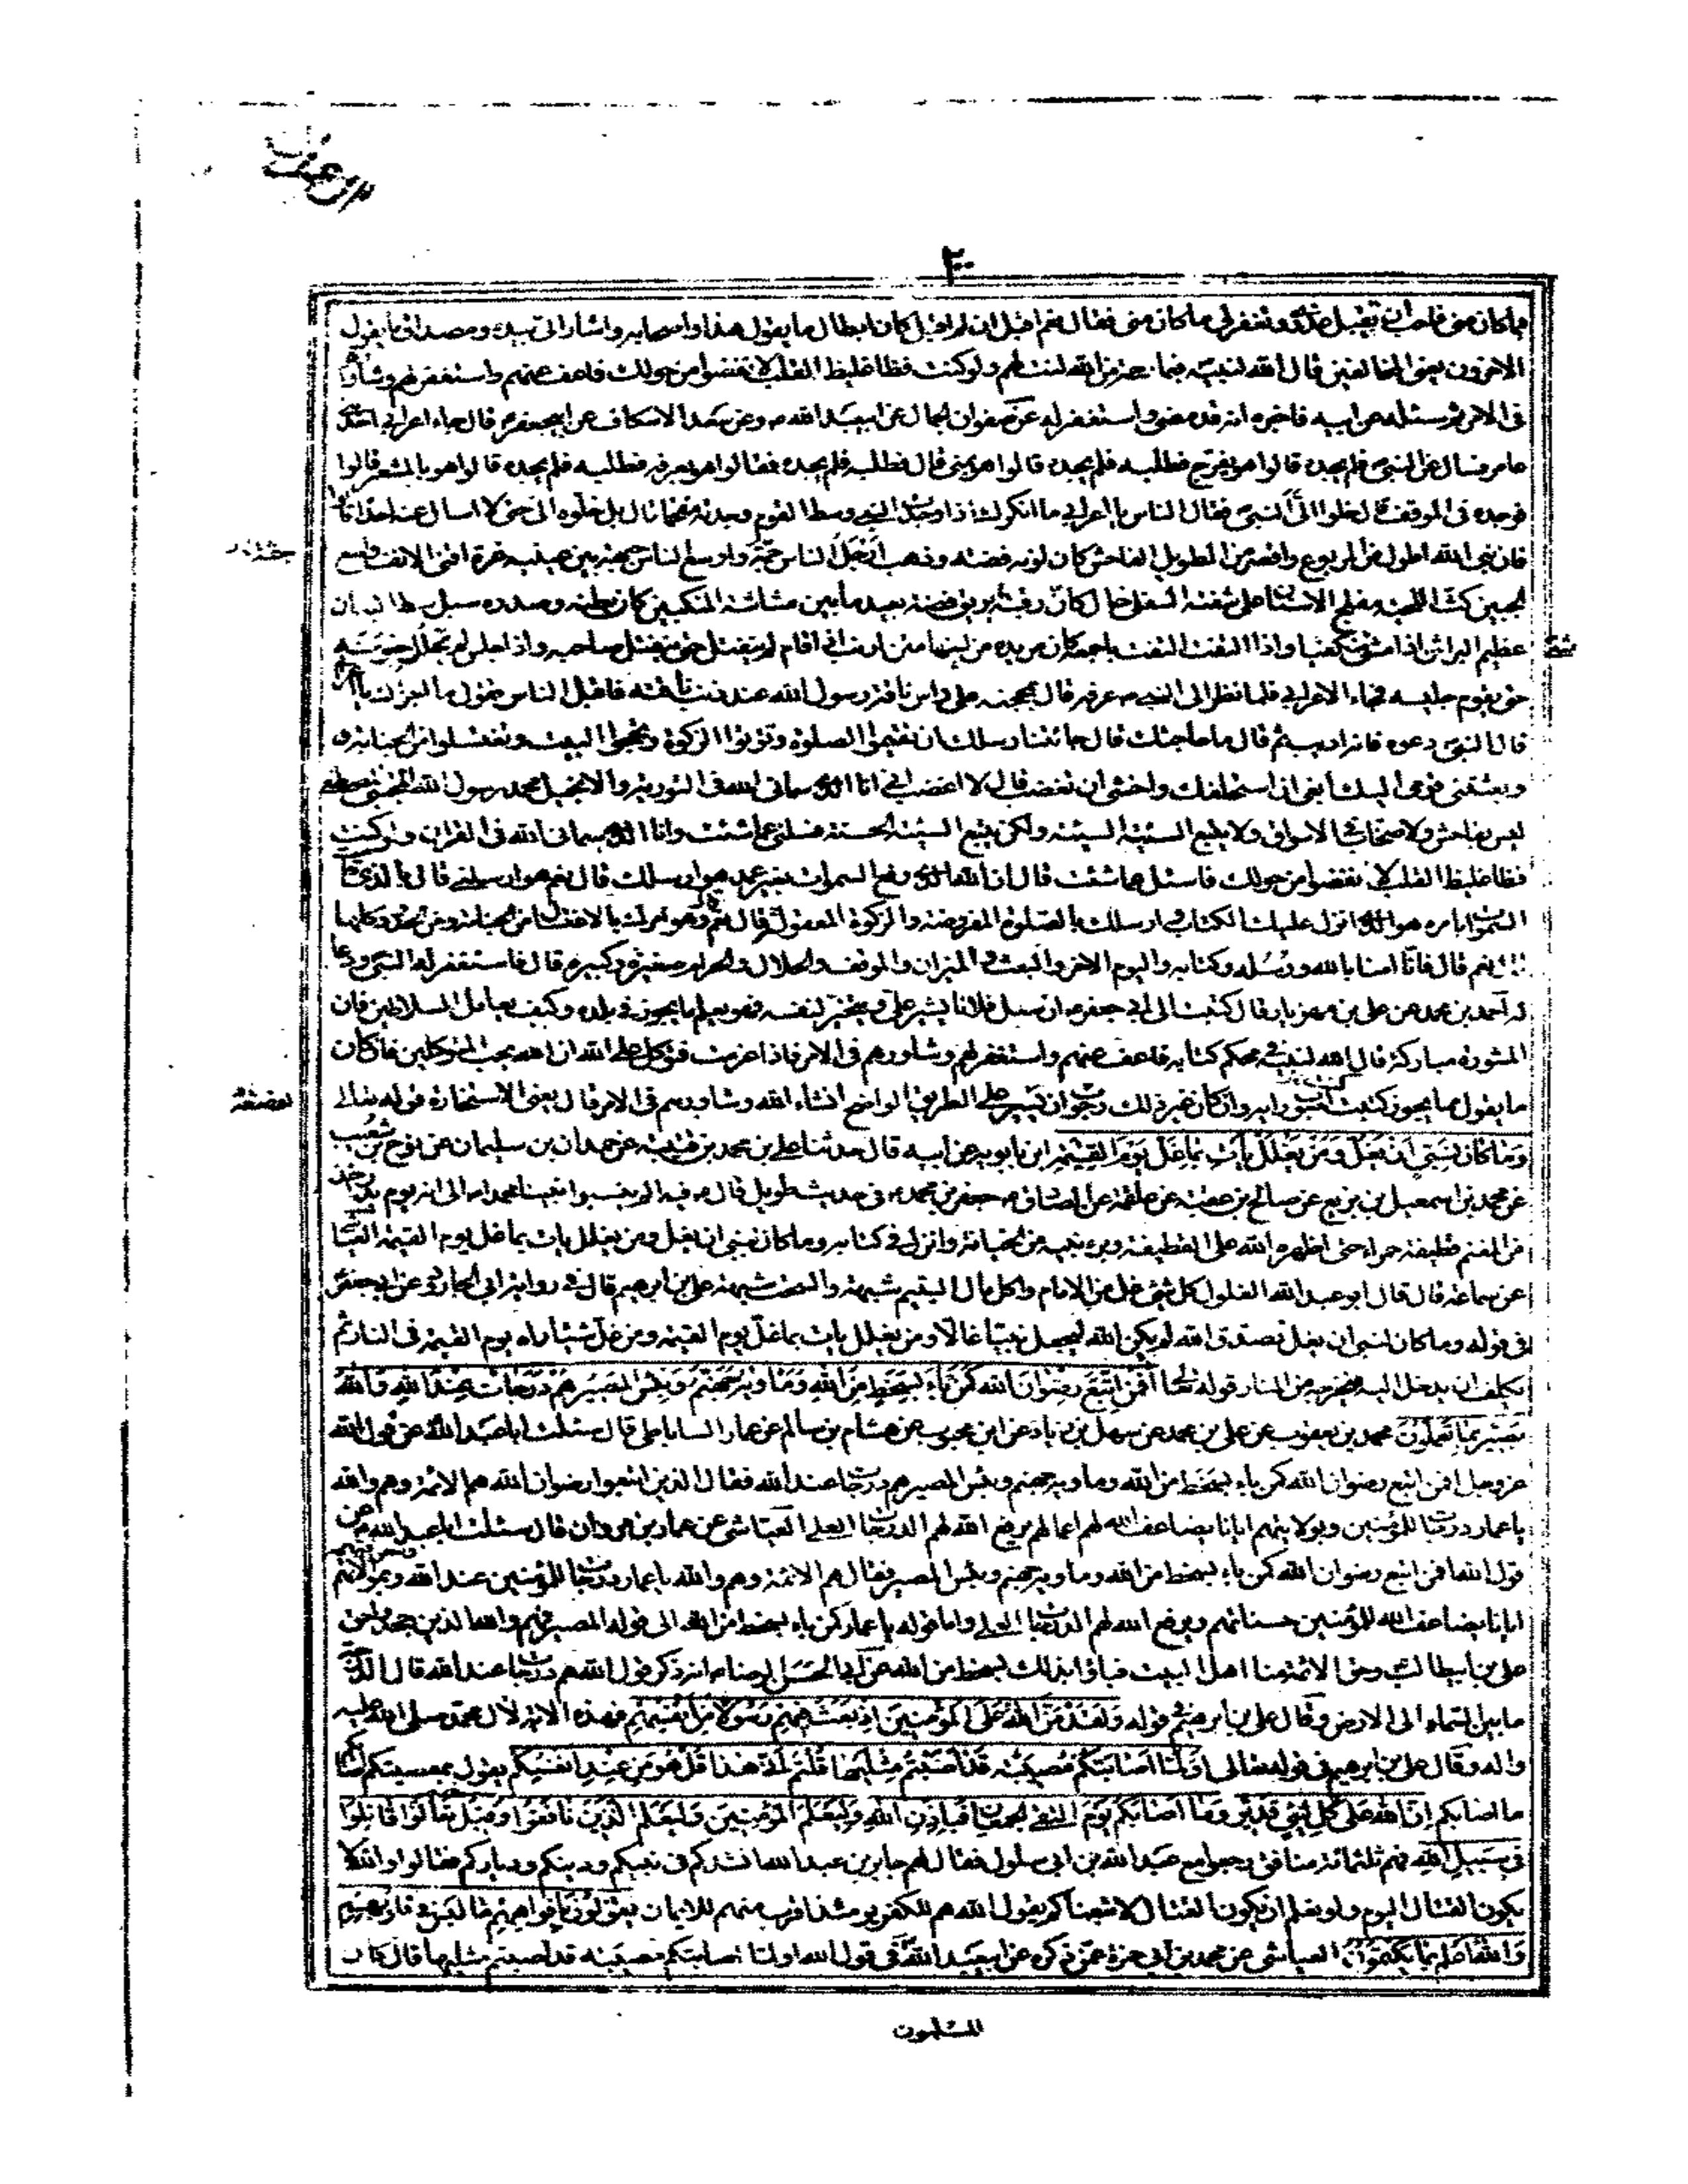 ٢٠٠
فما كان منى فاحب ان تقبل عذرى وتغفر لى ما كان منى فقال نعم اقبل ان لم اقبل كان ابطال ما يقول هذا واصحابه واشار الى بيده ومصداق ما يقول
الاخرون يعنى المخالفين قال الله لنبيه فبما رحمة من الله لنت لهم ولو كنت فظا غليظ القلب لانفضوا من حولك فاعف عنهم واستغفر لهم وشاورهم
فى الامر ثم سئله عن ابيه فاخبره انه قد مضى واستغفر له عن صفوان الجمال عن ابيعبد الله ع وعن سعد الاسكاف عن ابيجعفر ع قال جاء اعرابى احد بنى
عامر فسال عن النبى ص فلم يجده قالوا هو بقزح فطلبه فلم يجده قالوا هو بمنى قال فطلبه فلم يجده فقالوا هو بعرفة فطلبه فلم يجده قالوا هو بالمشعر قالوا
فوجده فى الموقف قال حلوا الى النبى ص فقال الناس يا اعرابى ما انكرك اذا وجدت النبى وسط القوم وجدته مفخما قال بل حلوه الى حتى لا اسال عنه احدا قالوا
فان نبى الله اطول من المربوع واقصر من الطويل الفاحش كان لونه فضة وذهب ارجل الناس جمة واوسع الناس جبهة بين عينيه غرة اقنى الانف واسع
الجبين كث اللحية مفلج الاسنان على شفته السفلى خال كان رقبته ابريق فضة بعيد ما بين مشاشة المنكبين كان بطنه وصدره سبل سبط البنان
عظيم البراثن اذا مشى مشى متكفئا واذا التفت التفت باجمعه كان يده من لينها متن ارنب اذا قام لم ينفتل حتى ينفتل صاحبه واذا جلس لم يحلل حبوته
حتى يقوم جليسه فجاء الاعرابى فلما نظر الى النبى ص عرفه قال بمحجنه على راس ناقة رسول الله عند ذنب ناقته فاقبل الناس تقول ما اجراك يا اعرابى
قال النبى ص دعوه فانه اديب ثم قال ما حاجتك قال جائتنا رسلك ان تقيموا الصلوة وتؤتوا الزكوة وتحجوا البيت وتغتسلوا من الجنابة
وبعثنى قومى اليك ابغى ان استحلفك واخشى ان تغضب قال لا اغضب انى انا الذى سمانى الله فى التورية والانجيل محمد رسول الله المجتبى المصطفى
ليس بفاحش ولا صخاب فى الاسواق ولا يتبع السيئة السيئة ولكن يتبع السيئة الحسنة فسلنى عما شئت وانا الذى سمانى الله فى القران ولو كنت
فظا غليظ القلب لانفضوا من حولك فاسئل عما شئت قال ان الله الذى رفع السموات بغير عمد هو ارسلك قال نعم هو ارسلنى قال بالذى قامت
السموات بامره هو الذى انزل عليك الكتاب وارسلك بالصلوة المفروضة والزكوة المعقولة قال نعم قال وهو امرك بالاغتسال من الجنابة وبالحدود كلها
قال نعم قال فانا امنا بالله ورسله وكتابه واليوم الاخر والبعث والميزان والموقف والحلال والحرام صغيره وكبيره قال فاستغفر له النبى ص ودعا
له احمد بن محمد عن على بن مهزيار قال كتب الى ابى جعفر ع ان سل فلانا يشير على ويتخير لنفسه فهو يعلم ما يجوز فى بلده وكيف يعامل السلاطين فان
المشورة مباركة قال الله لنبيه فى محكم كتابه فاعف عنهم واستغفر لهم وشاورهم فى الامر فاذا عزمت فتوكل على الله ان الله يحب المتوكلين فان كان
ما يقول مما يجوز كتبت اصوب رايه وان كان غير ذلك رجوت ان نسير على الطريق الواضح انشاء الله وشاورهم فى الامر قال يعنى الاستخارة قوله تعالى
وَمَا كَانَ لِنَبِىٍّ اَنْ يَغُلَّ وَمَنْ يَغْلُلْ يَأْتِ بِمَا غَلَّ يَوْمَ الْقِيٰمَةِ ابن بابويه عن ابيه قال حدثنا على بن محمد بن قتيبة عن حمدان بن سليمان عن نوح بن شعيب
عن محمد بن اسمعيل بن بزيع عن صالح بن عقبة عن علقمة عن الصادق جعفر بن محمد ع فى حديث طويل قال ع فيه الم ينسبوا نبينا محمدا ص الى انه يوم بدر اخذ
من المغنم قطيفة حمراء حتى اظهره الله على القطيفة وبرء نبيه من الخيانة وانزل فى كتابه وما كان لنبى ان يغل ومن يغلل يات بما غل يوم القيمة العياشى
عن سماعة قال قال ابو عبد الله الغلول كل شىء غل من الامام واكل مال اليتيم شبهة والسحت شبهة على بن ابرهيم قال فى رواية ابى الجارود عن ابيجعفر ع
فى قوله وما كان لنبى ان يغل فصدق الله لم يكن الله ليجعل نبيا غالا ومن يغلل يات بما غل يوم القيمة ومن غل شيئا راه يوم القيمة فى النار ثم
يكلف ان يدخل اليه فيخرجه من النار قوله تعالى اَفَمَنِ اتَّبَعَ رِضْوَانَ اللهِ كَمَنْ بَاءَ بِسَخَطٍ مِنَ اللهِ وَمَأْوٰيهُ جَهَنَّمُ وَبِئْسَ الْمَصِيرُ هُمْ دَرَجَاتٌ عِنْدَ اللهِ وَاللهُ
بَصِيرٌ بِمَا تَعْمَلُونَ محمد بن يعقوب عن على بن محمد عن سهل بن زياد عن ابن محبوب عن هشام بن سالم عن عمار الساباطى قال سئلت ابا عبد الله ع عن قول الله
عز وجل افمن اتبع رضوان الله كمن باء بسخط من الله وماويه جهنم وبئس المصير هم درجات عند الله فقال الذين اتبعوا رضوان الله هم الائمة وهم والله
يا عمار درجات للمؤمنين وبولايتهم ايانا يضاعف الله لهم اعمالهم ويرفع الله لهم الدرجات العلى العياشى عن عمار بن مروان قال سئلت ابا عبد الله ع عن
قول الله افمن اتبع رضوان الله كمن باء بسخط من الله وماويه جهنم وبئس المصير فقال هم الائمة وهم والله يا عمار درجات للمؤمنين عند الله وبموالاتهم
ايانا يضاعف الله للمؤمنين حسناتهم ويرفع الله لهم الدرجات العلى واما قوله يا عمار كمن باء بسخط من الله الى قوله المصير فهم والله الذين جحدوا حق
على بن ابيطالب وحق الائمة منا اهل البيت فباؤا بذلك بسخط من الله عن ابى الحسن الرضا ع انه ذكر قول الله هم درجات عند الله قال الدرجة
ما بين السماء الى الارض وقال على بن ابرهيم ثم قوله وَلَقَدْ مَنَّ اللهُ عَلَى الْمُؤْمِنِينَ اِذْ بَعَثَ فِيهِمْ رَسُولًا مِنْ اَنْفُسِهِمْ فهذه الاية لال محمد صلى الله عليه
واله وقال على بن ابرهيم فى قوله تعالى اَوَلَمَّا اَصَابَتْكُمْ مُصِيبَةٌ قَدْ اَصَبْتُمْ مِثْلَيْهَا قُلْتُمْ اَنّٰى هٰذَا قُلْ هُوَ مِنْ عِنْدِ اَنْفُسِكُمْ يقول بمعصيتكم اصابكم
ما اصابكم اِنَّ اللهَ عَلٰى كُلِّ شَىْءٍ قَدِيرٌ وَمَا اَصَابَكُمْ يَوْمَ الْتَقَى الْجَمْعَانِ فَبِاِذْنِ اللهِ وَلِيَعْلَمَ الْمُؤْمِنِينَ وَلِيَعْلَمَ الَّذِينَ نَافَقُوا وَقِيلَ لَهُمْ تَعَالَوْا قَاتِلُوا
فِى سَبِيلِ اللهِ فهم ثلثمائة منافق رجعوا مع عبد الله بن ابى سلول فقال لهم جابر بن عبد الله انشدكم فى نبيكم ودينكم ودياركم فقالوا والله لا
يكون القتال اليوم ولو نعلم ان يكون القتال لاتبعناكم يقول الله هم للكفر يومئذ اقرب منهم للايمان يَقُولُونَ بِاَفْوَاهِهِمْ مَا لَيْسَ فِى قُلُوبِهِمْ
وَاللهُ اَعْلَمُ بِمَا يَكْتُمُونَ العياشى عن محمد بن ابى حمزة عمن ذكره عن ابيعبد الله ع فى قول الله اولما اصابتكم مصيبة قد اصبتم مثليها قال كان
المسلمون